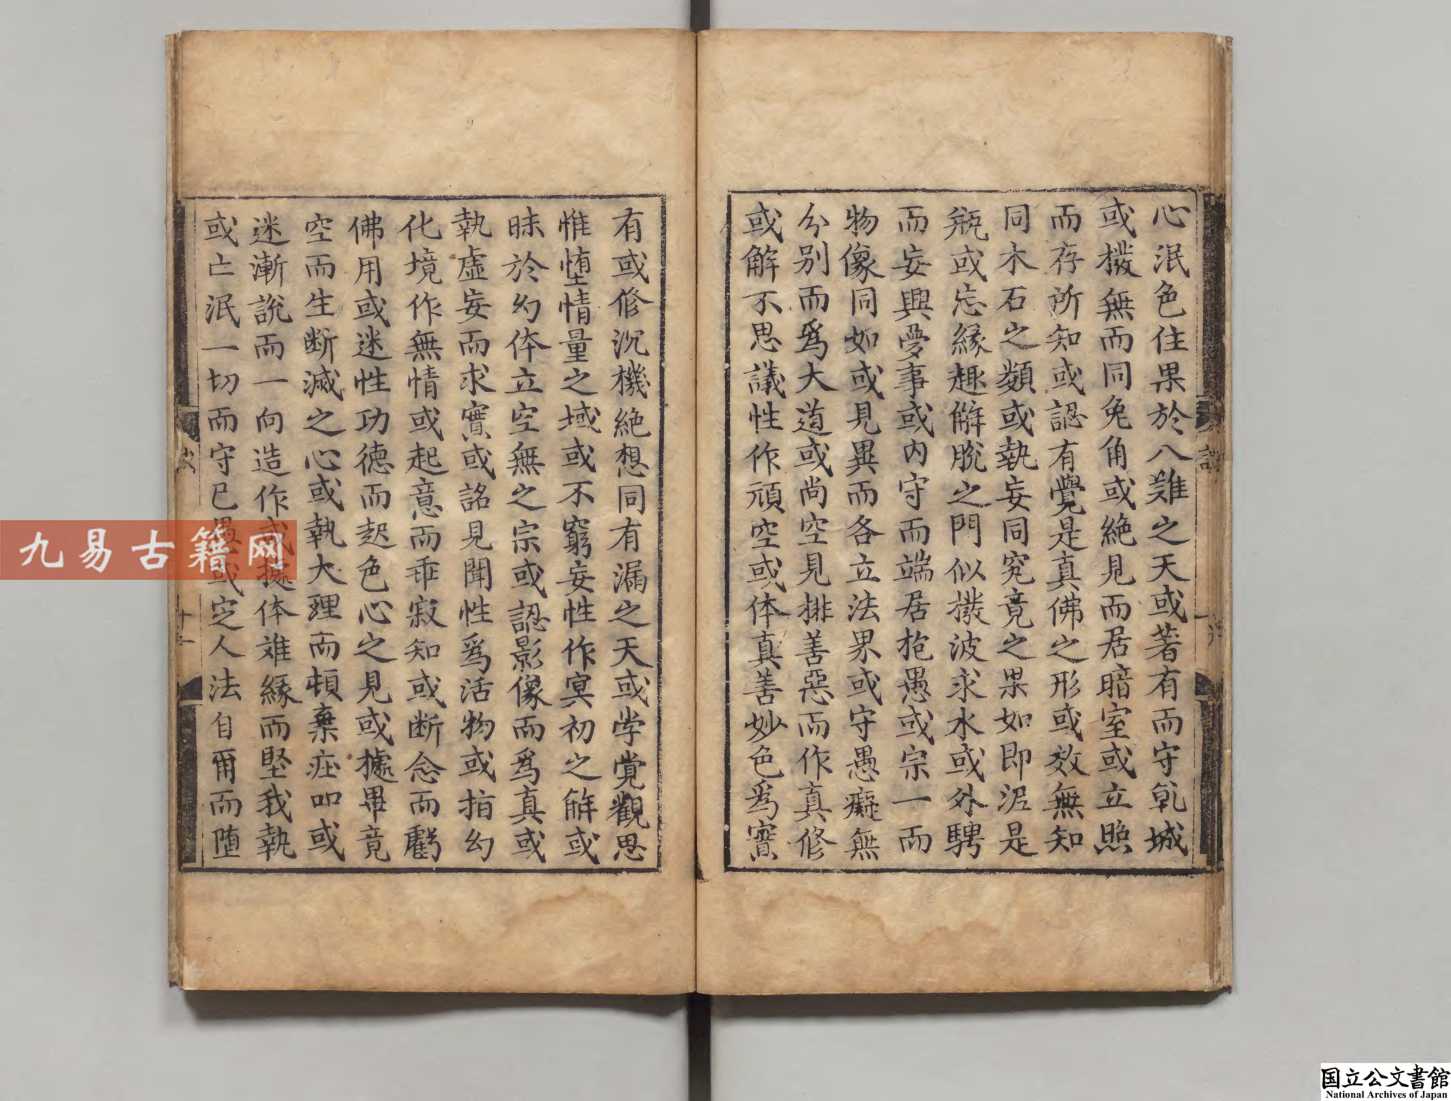 心泯色住果於八難之天或著有而守乹城
或撥無而同兔角或絶見而居暗室或立照
而存所知或認有覺是真佛之形或效無知
同木石之類或執妄同究竟之果如即泥是
瓶或忘緣趣解脫之門似撥波求水或外騁
而妄興夢事或内守而端居抱愚或宗一而
物像同如或見異而各立法界或守愚癡無
分別而爲大道或尚空見排善惡而作真修
或解不思議性作頑空或体真善妙色爲實
有或修沉機絶想同有漏之天或学覚觀思
惟堕情量之域或不窮妄性作冥初之解或
昧於幻体立空無之宗或認影像而爲真或
執虚妄而求實或詺見聞性爲活物或指幻
化境作無情或起意而乖寂知或断念而虧
佛用或迷性功德而起色心之見或據畢竟
空而生断滅之心或執大理而頓棄庄嚴或
迷漸說而一向造作或據体離緣而堅我執
或亡泯一切而守已愚或定人法自爾而堕
九易古籍网
国立公文書館
National Archives of Japan